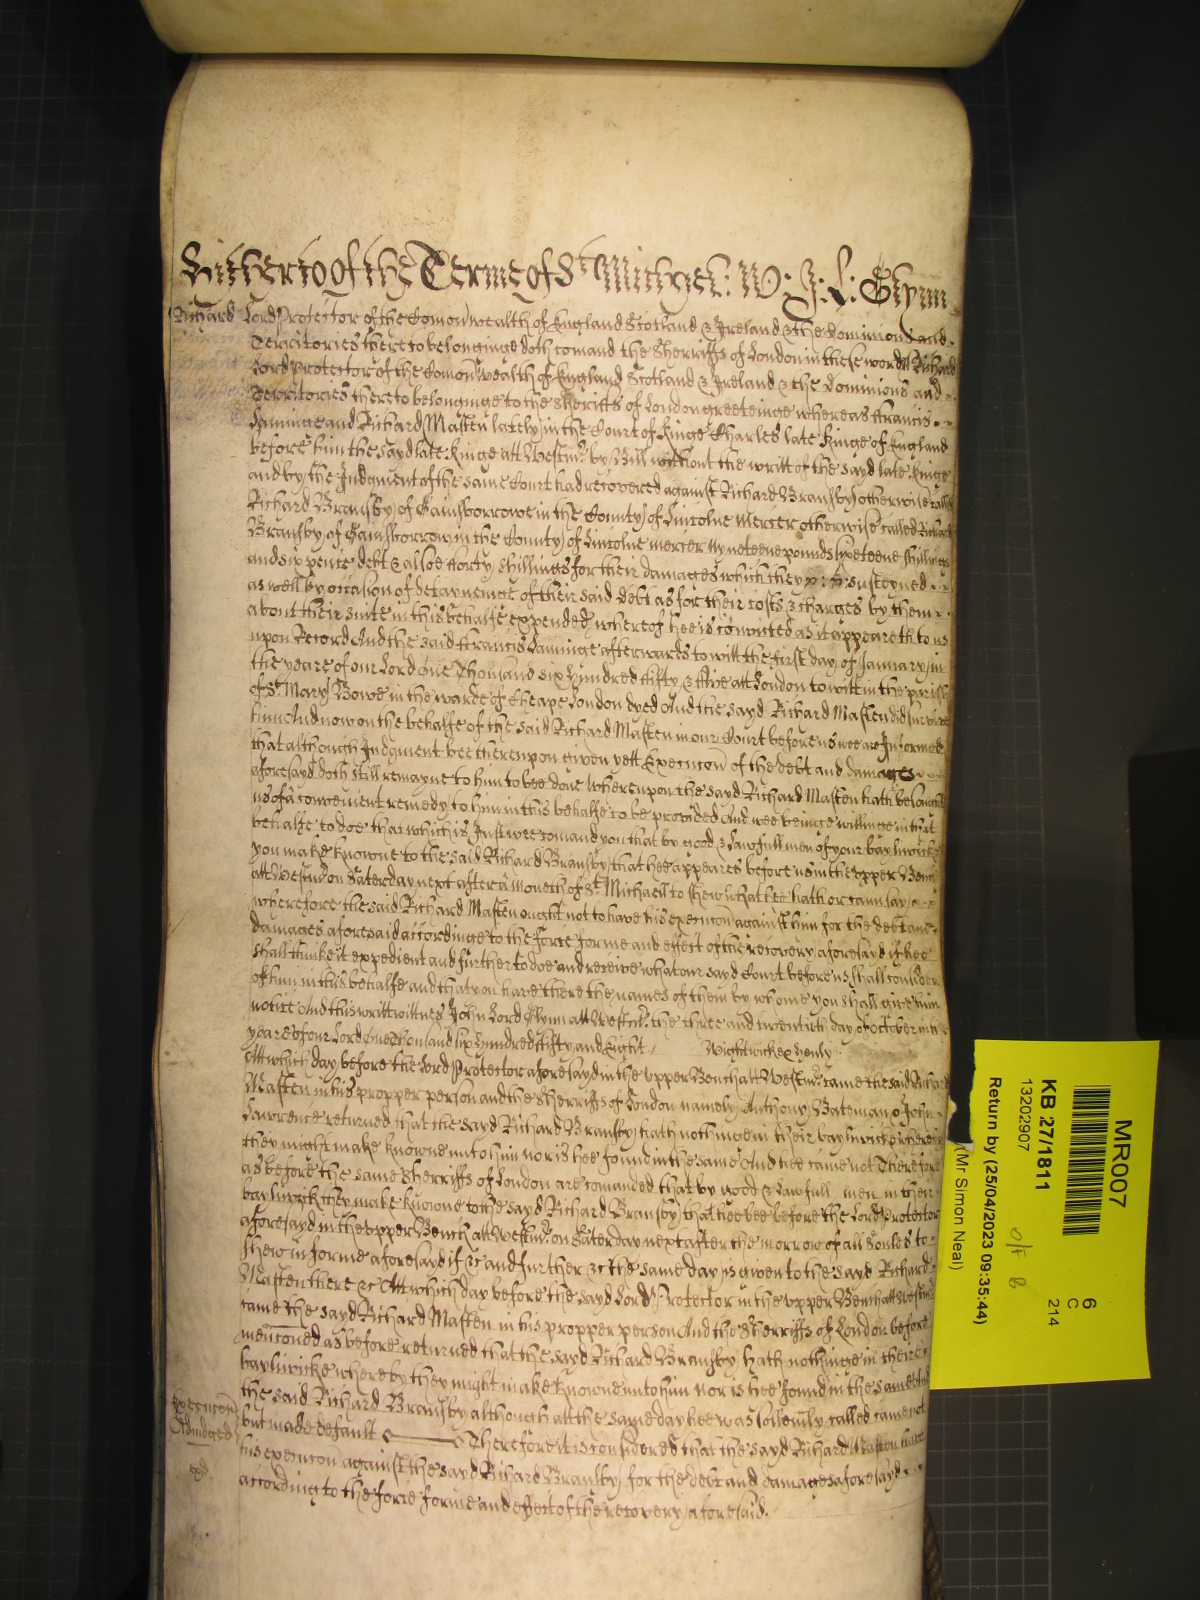 Hitherto of the Terme of St Michael: W: J: L: Glynn
Richard Lord Protector of the Comonwealth of England Scotland & Ireland & the Dominions and
Territories thereto belonginge doth comand the Sherriffs of London in these words Richard
Lord Protector of the Comonwealth of England Scotland & Ireland & the Dominions and
Territories thereto belonginge to the Sheriffs of London greeteinge whereas Francis
Laninge and Richard Masten lately in the Court of Kinge Charles late Kinge of England
before him the sayd late Kinge att Westmr by Bill without the writt of the sayd late Kinge
and by the Judgment of the same Court had recovered against Richard Bransby otherwise called
Richard Bransby of Gainsborrowe in the County of Lincolne Mercer otherwise called Richard
Bransby of Gainsborrow in the County of Lincolne mercer Nyneteene pounds sixteene shillings
and six pence debt & alsoe forty shillings for their damages which they susteyned
as well by occasion of detayneinge of their said debt as for their costs & charges by them
about their suite in this behalfe expended whereof hee is convicted as it appeareth to us
upon Record And the said Francis Laninge afterwards to witt the first day of January in
the yeare of our Lord One Thousand six hundred fifty & five att London to witt in the parish
of St Mary Bowe in the warde of Cheape London dyed And the sayd Richard Masten did survive
him And now on the behalfe of the said Richard Masten in our Court before us wee are Informed
that although Judgment bee thereupon given yett Execucon of the debt and damages
aforesayd doth still remayne to him to bee done Whereupon the sayd Richard Masten hath besought
us of a convenient remedy to him in this behalfe to be provided And wee beinge willinge in that
behalfe to doe that which is Just wee comand you that by good & lawfull men of your bayliwicke
you make knowne to the said Richard Bransby that hee appeares before us in the upper Bench
att Westm on Saterday next after a moneth of St Michaell to shew what hee hath or cann say
wherefore the said Richard Masten ought not to have his execucon against him for the debt and
damages aforesaid accordinge to the force forme and effect of the recovery aforesayd if hee
shall thinke it expedient and further to doe and receive what our sayd Court before us shall consider
of him in this behalfe and that you have there the names of them by whome you shall give him
notice And this writt wittnes John Lord Glynn att Westmr the three and twentith day of October in the
yeare of our Lord One Thousand six hundred fifty and Eight Wightwicke & Henly
Att which day before the Lord Protector aforesayd in the upper Bench att Westmr came the said Richard
Masten in his propper person and the Sherriffs of London namely Anthony Bateman & John
Lawrence returned that the sayd Richard Bransby hath nothinge in their bayliwick whereby
they might make knowne unto him nor is hee found in the same And hee came not Therefore
as before the same Sherriffs of London are comanded that by good & lawfull men in their
bayliwicke they make knowne to the sayd Richard Bransby that hee bee before the Lord Protector
aforesayd in the upper Bench att Westmr on Saterday next after the morrow of all Soules to
shew in forme aforesayd if &c and further &c the same day is given to the sayd Richard
Masten there &c Att which day before the sayd Lord Protector in the upper Bench att Westmr
came the sayd Richard Masten in his propper person And the Sherriffs of London before
mencioned as before returned that the sayd Richard Bransby hath nothinge in theire
bayliwicke whereby they might make knowne unto him nor is hee found in the same And
the said Richard Bransby although att the same day hee was sollemnly called came not
Execucon but made default Therefore it is considered that the sayd Richard Masten have
Adiudged his execucon against the sayd Richard Bransby for the debt and damages aforesayd
according to the force forme and effect of the recovery aforesaid.
MR007
KB 27/1811
13202907
Return by (25/04/2023 09:35:44)
(Mr Simon Neal)
6
C
214